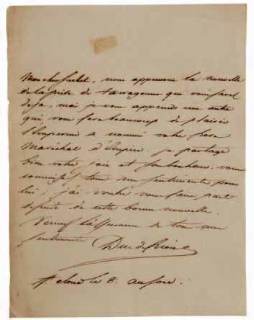 Mon cher Suchet, nous apprenons la nouvelle
de la prise de Tarragone que vous savez
deja, moi je vous apprends une autre
qui vous fera beaucoup de plaisir
l'Empereur a nommé votre frere
Maréchal d'Empire je partage
bien votre joie et son bonheur, vous
connaissez tous mes sentiments pour
lui, j'ai voulu vous faire part
de cette bonne nouvelle.
de tous mes
sentiments
Duc de
St cloud le 8. au soir.